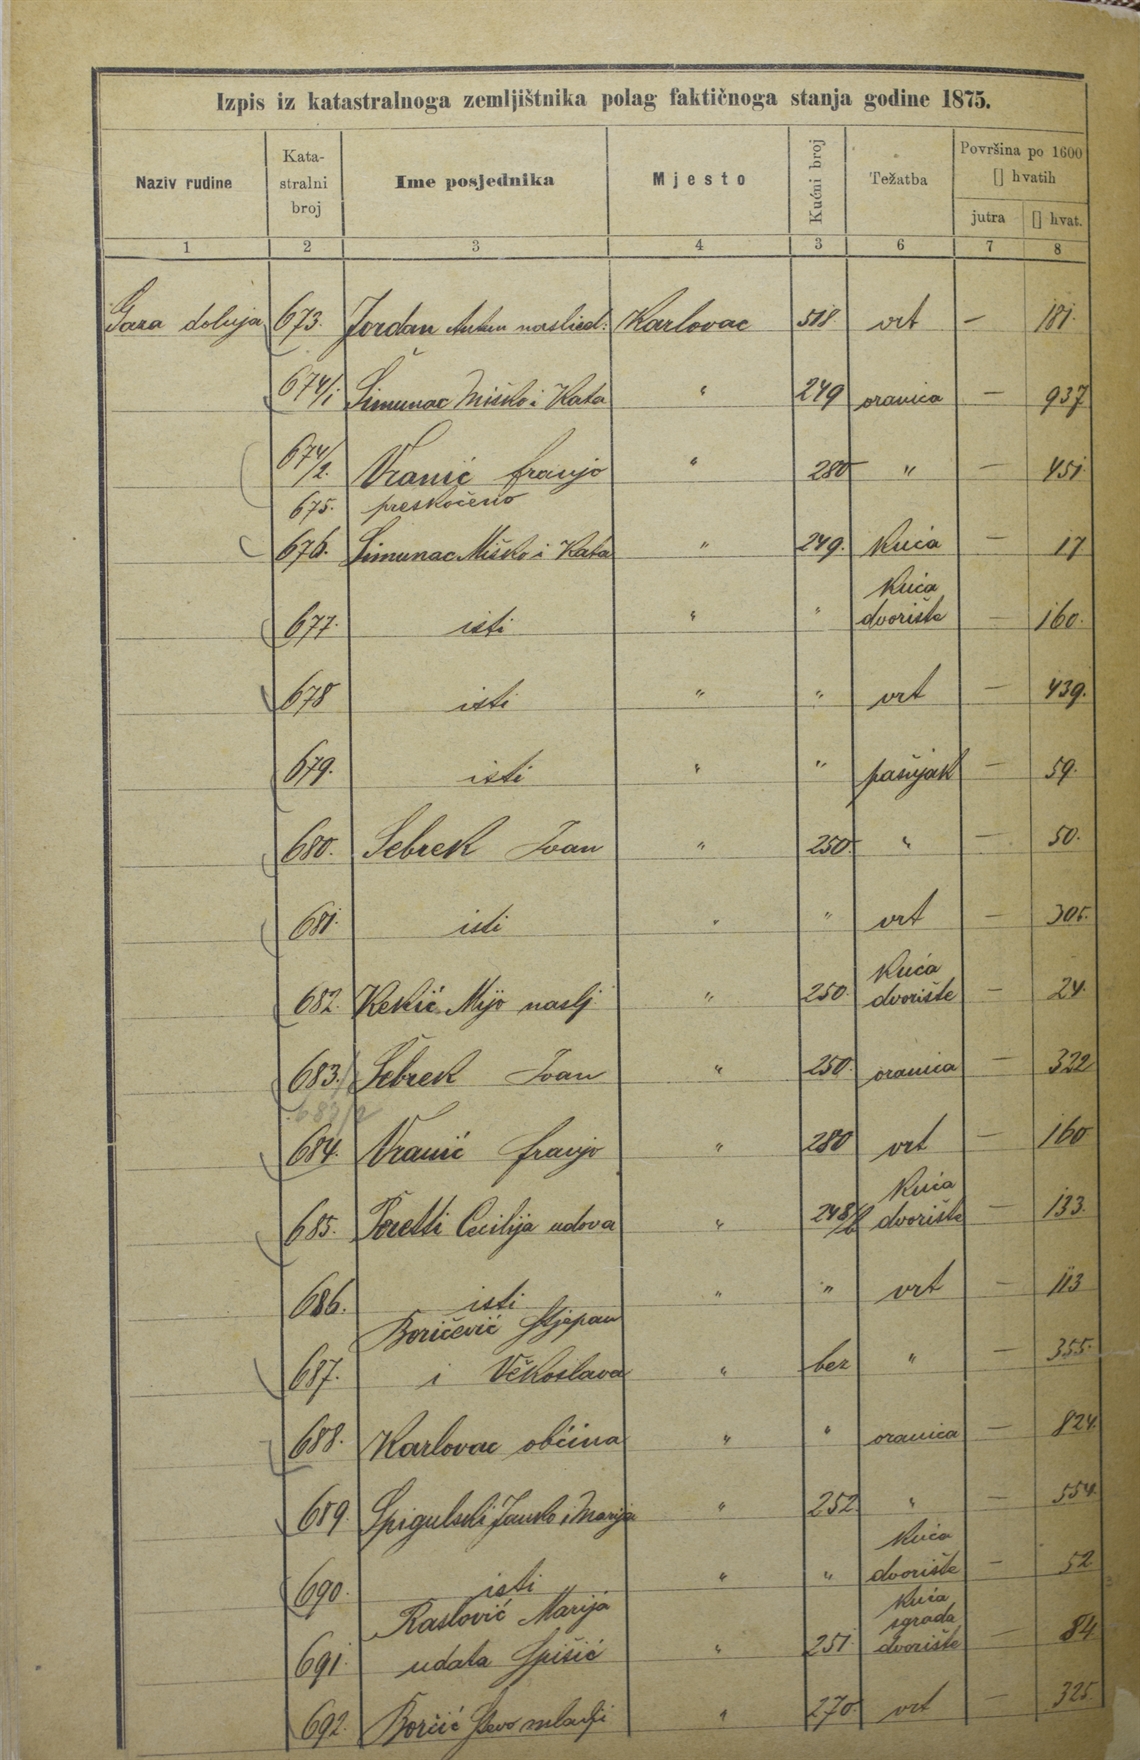 Izpis iz katastralnoga zemljištnika polag faktičnoga stanja godine 1875.
Naziv rudine Kata-stralni broj Ime posjednika Mjesto Kućni broj Težatba Površina po 1600 [] hvatih
jutra [] hvat.
1 2 3 4 3 6 7 8
Gaza dolnja 673. Jordan Antun naslied. Karlovac 518 vrt — 181.
674/1 Šimunac Miško i Kata " 249 oranica — 937
674/2. Vranić Franjo " 280 " — 451
675. preskočeno
676. Šimunac Miško i Kata " 249. kuća — 17
677. isti " " kuća dvorište — 160.
678 isti " " vrt — 439.
679. isti " " pašnjak — 59.
680. Šebrek Ivan " 250. " — 50.
681. isti " " vrt — 305.
682. Kekić Mijo naslj " 250. kuća dvorište — 24.
683./1 Šebrek Ivan " 250. oranica — 322
683/2
684. Vranić Franjo " 280 vrt — 160
685. Peretti Cecilija udova " 248/b kuća dvorište — 133.
686. isti " " vrt — 113
687. Boričević Stjepan
i Vėkoslava " bez " — 355.
688. Karlovac občina " " oranica — 824.
689. Spigulski Janko i Marija " 252. " — 554.
690. isti " " kuća dvorište — 52
691. Raslović Marija
udata Spišić " 251. kuća sgrada dvorište — 84
692. Borčić Stevo mladji " 270. vrt — 325.